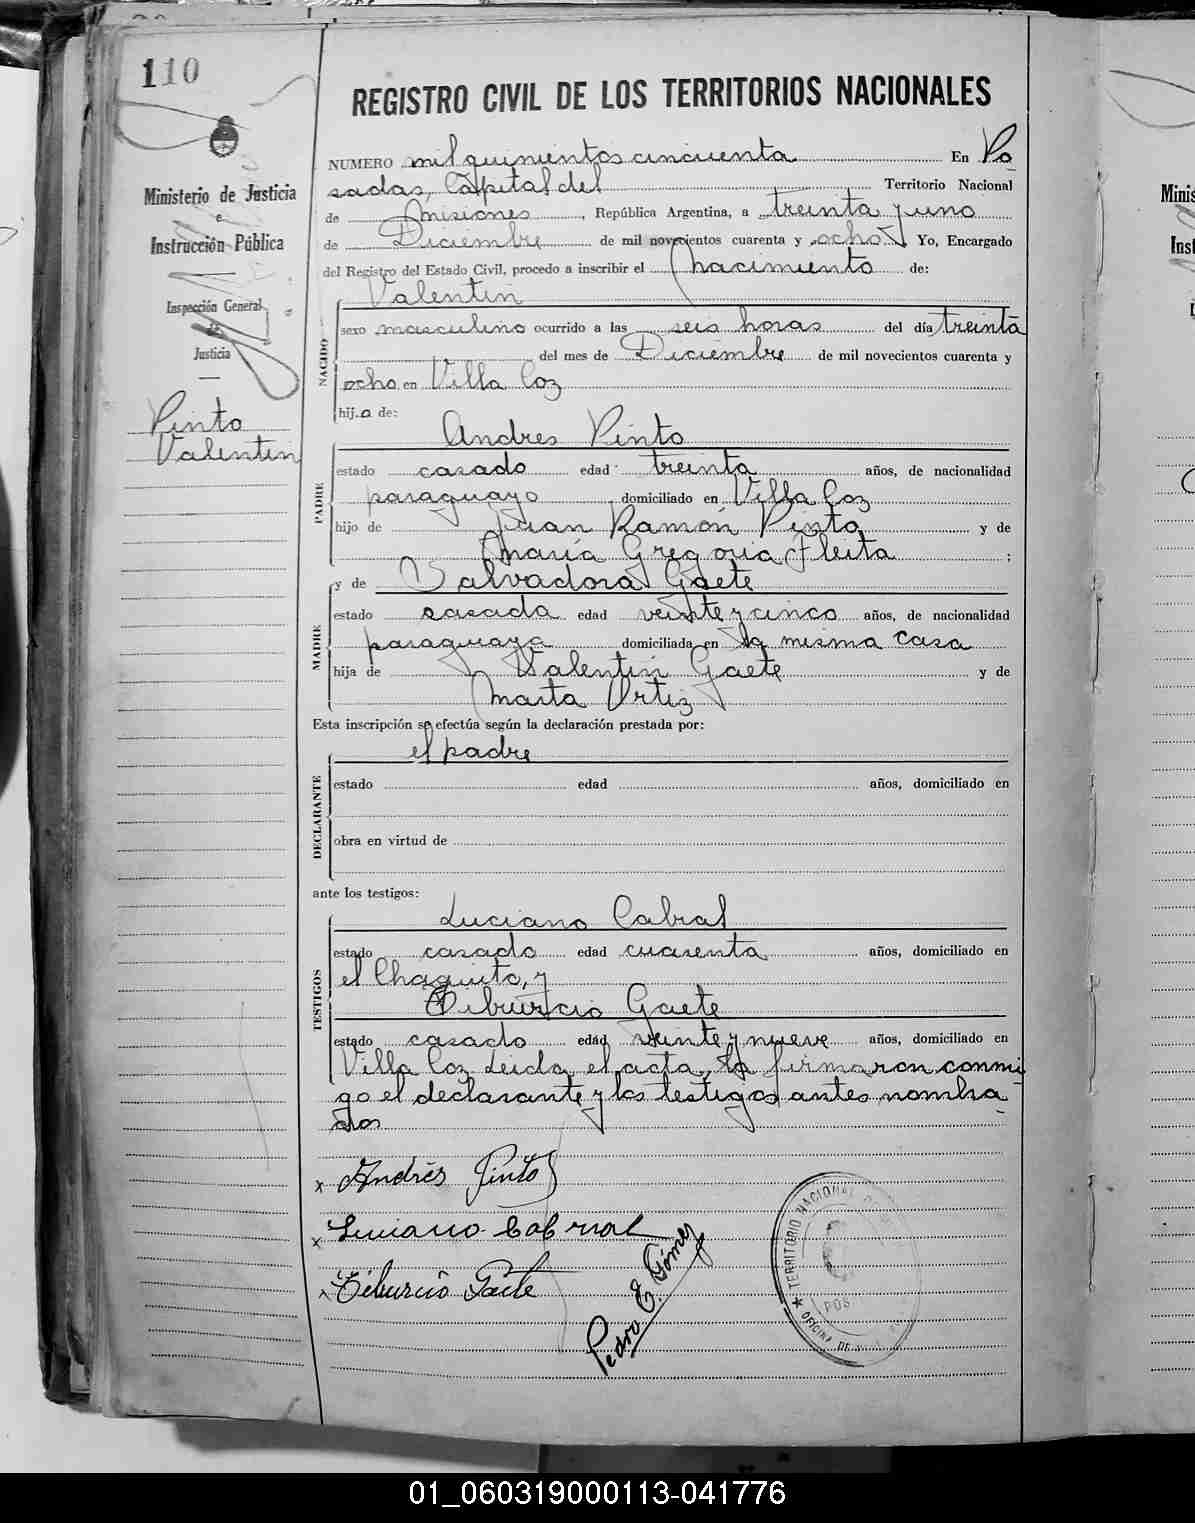 110
REGISTRO CIVIL DE LOS TERRITORIOS NACIONALES
Ministerio de Justicia
e
Instrucción Pública
Inspección General
de
Justicia
Pinto
Valentin
NUMERO mil quinientos cincuenta En Po
sadas, Capital del Territorio Nacional
de Misiones, República Argentina, a treinta y uno
de Diciembre de mil novecientos cuarenta y ocho Yo, Encargado
del Registro del Estado Civil, procedo a inscribir el nacimiento de:
NACIDO
Valentin
sexo masculino ocurrido a las seis horas del día treinta
del mes de Diciembre de mil novecientos cuarenta y
ocho en Villa Coz
hij.o de:
PADRE
Andres Pinto
estado casado edad treinta años, de nacionalidad
paraguayo domiciliado en Villa Coz
hijo de Juan Ramón Pinto y de
Maria Gregoria Fleita ;
y de Salvadora Gaete
MADRE
estado casada edad veinte y cinco años, de nacionalidad
paraguaya domiciliada en la misma casa
hija de Valentin Gaete y de
Marta Ortiz
Esta inscripción se efectúa según la declaración prestada por:
el padre
DECLARANTE
estado edad años, domiciliado en
obra en virtud de
ante los testigos:
TESTIGOS
Luciano Cabral
estado casado edad cuarenta años, domiciliado en
el Chaquito, y
Tiburcio Gaete
estado casado edad veinte y nueve años, domiciliado en
Villa Coz Leida el acta, la firmaron conmi
go el declarante y los testigos antes nombra
dos
x Andrés Pinto
x Luciano Cabrial
x Tiburcio Gaete
Pedro E. Gómez
★ TERRITORIO NACIONAL
POS
OFICINA DE
Minis
Inst
01_060319000113-041776